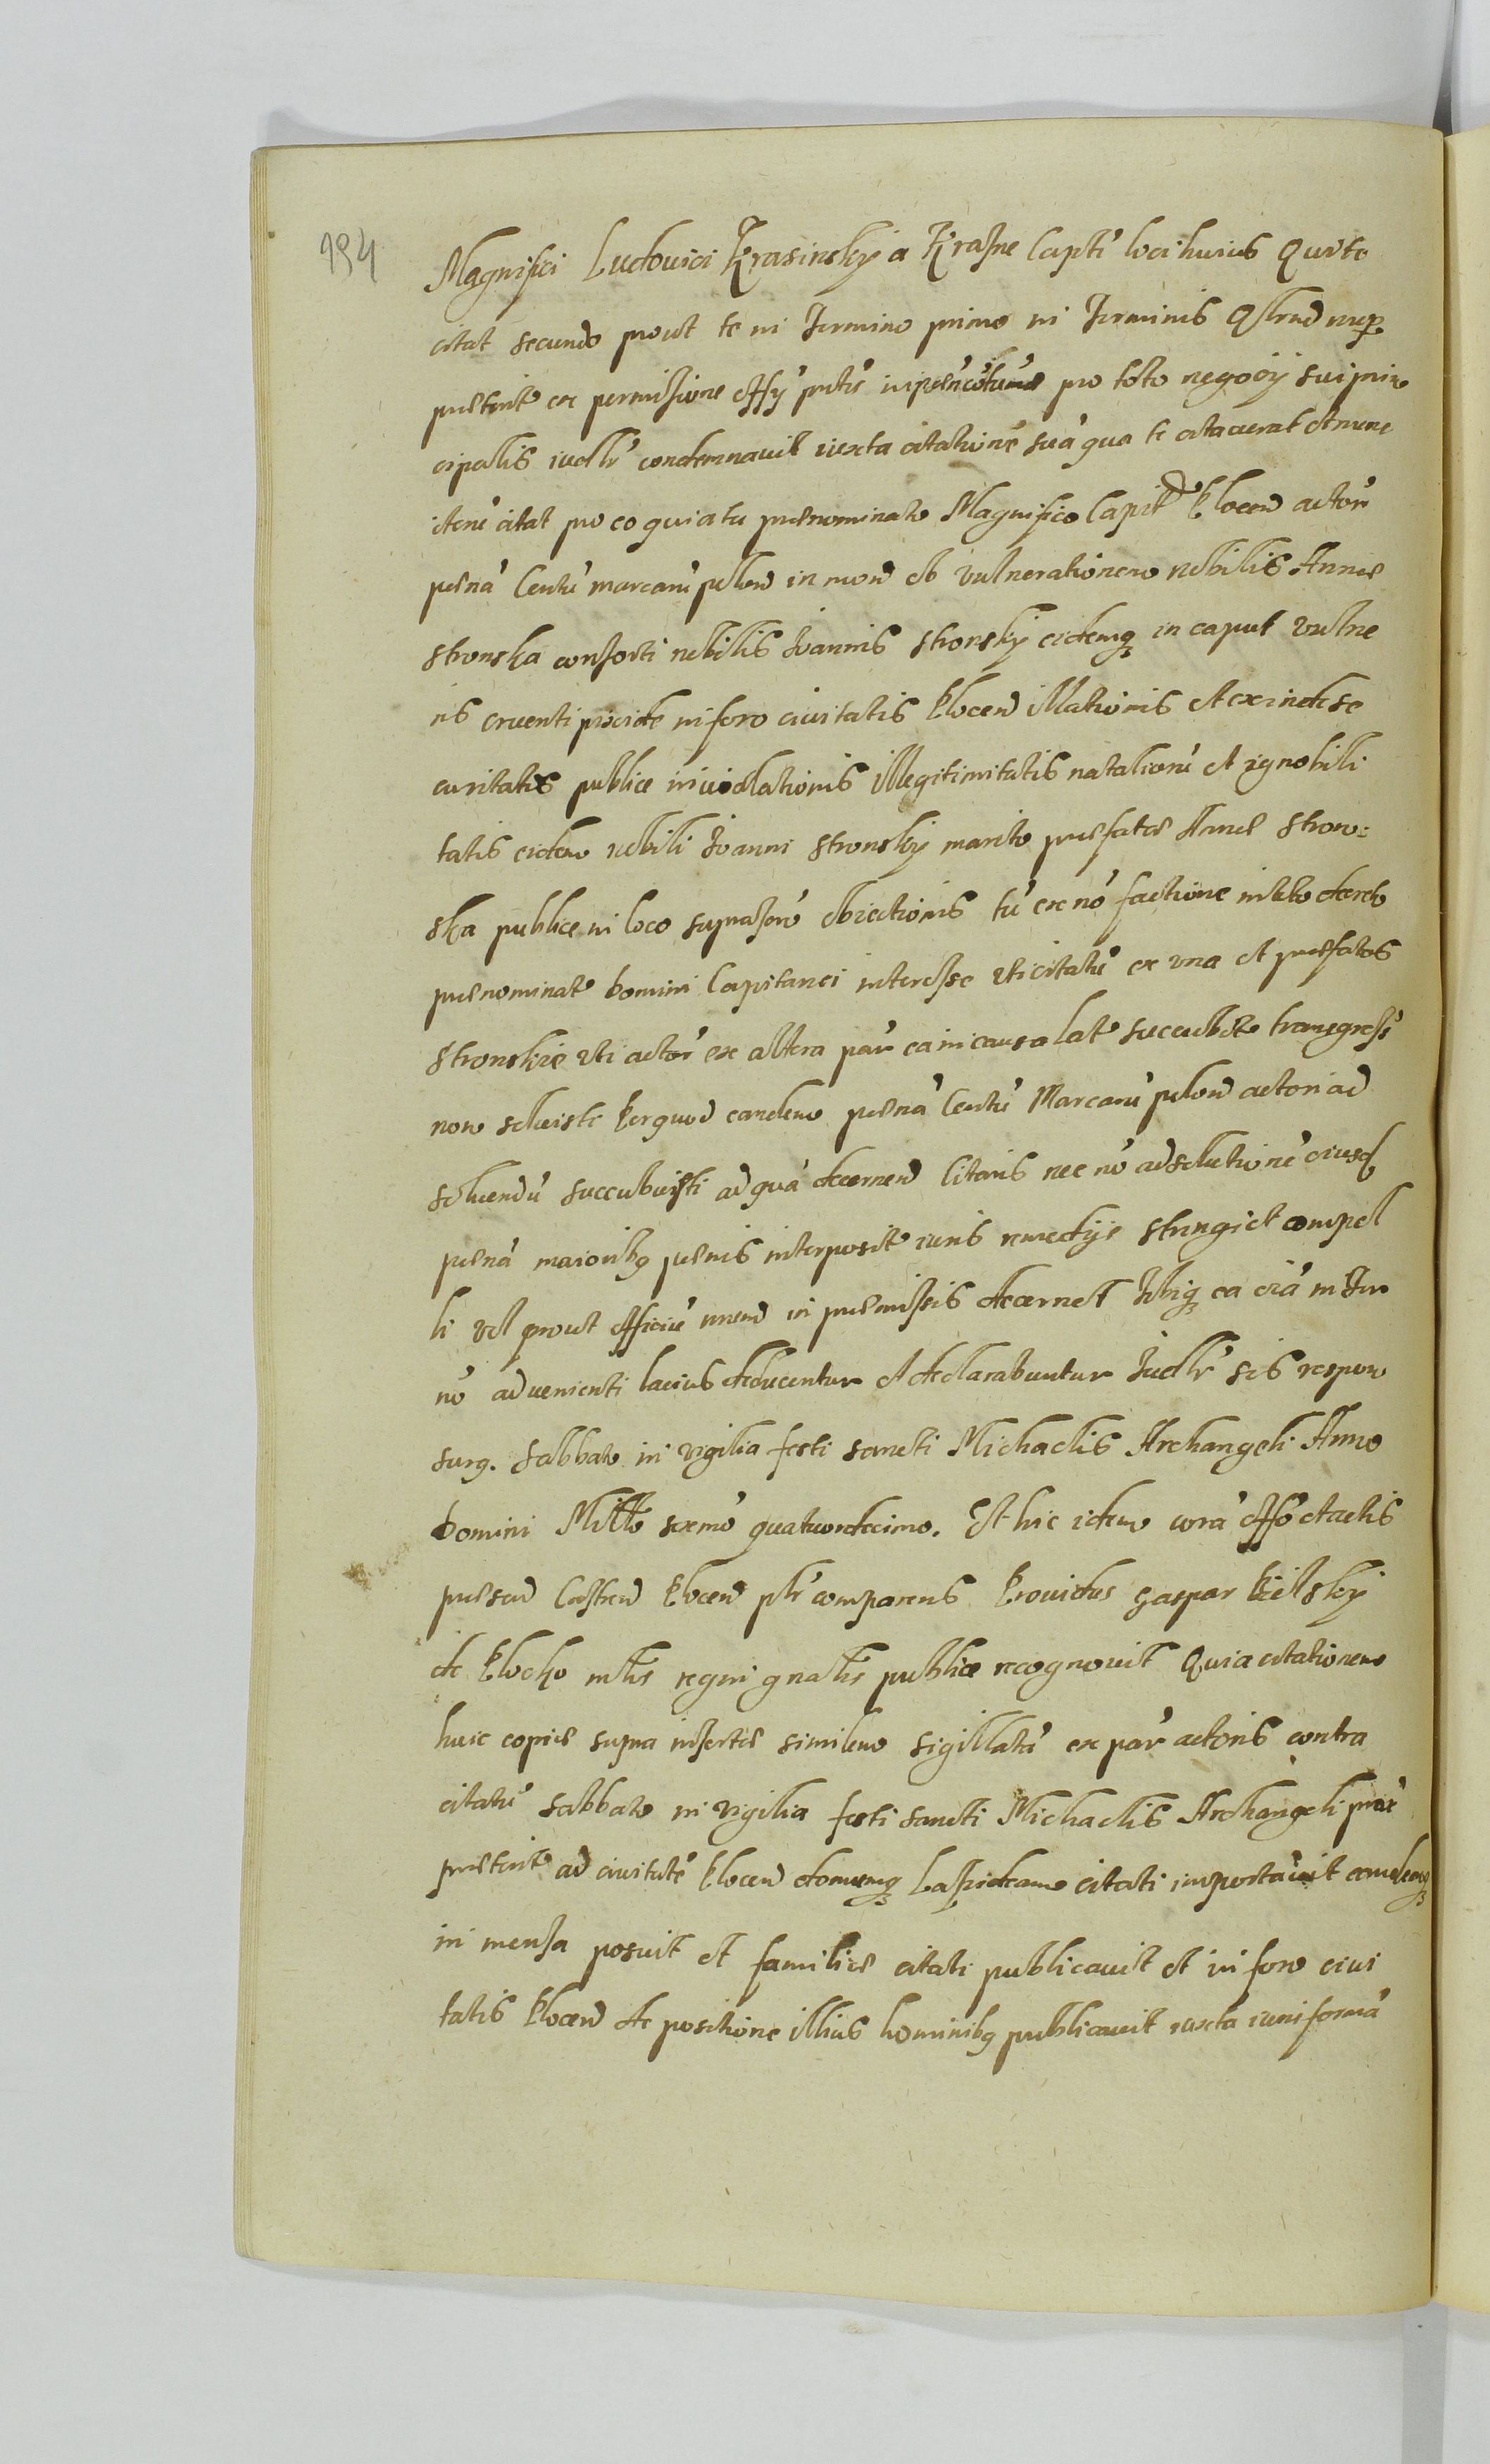 194
Magnifici Ludovici Krasinsky a Krasne Capti loci huius Qui te
citat secundo prout te in Termino primo in Terminis Qstrnd nup
preterit ex permissione offij pntis pro toto negocij sui prin
cipalis iudlr condemnavit iuxta citatione sua qua te citaverat et nunc
citat pro eo quia tu prenominato Magnifico Capit Plocen actori
pena Centu marcaru polon in mon ob vulnerationem nobilis Anne
Stronska consorti nobilis Joannis Stronsky eidemq in caput vulne
ris cruenti in foro civitatis Plocen illationis et exinde se
curitatis publice inviolationis illegitimitatis nataliou et ignobili
tatis eidem nobili Joanni Stronsky marito prefate Anne Stron=
ska publice in loco obiectionis tu ex no factione decreto
prenominato Domini Capitanei interesse citatu ex una et prefatos
Stronskie uti actor ex altera par ea in causa lat succubito transgress
non solvisti Per quod eandem pena Centu Marcaru polon actori ad
solvendu succubuisti ad qua decernend Citaris nec no ad solutione eiusd
pena maioribq penis interposit iuris remedijs stringi et compel
li vel prout officiu in premissis decernet Ibiq ea oia in Ter
no advenienti lacius deducentur et declarabuntur Iudlr sis respon
surq. Sabbato in vigilia festi sancti Michaelis Archangeli Anno
Domini Millo sexmo quatuordecimo. Et hic idem cora offo et actis
presen Castren Plocen plr comparens Providus Gaspar Bielsky
de Plocko mtlis regni gnalis publice recognovit Quia citationem
huic copie supra inserte similem sigillata ex par actoris contra
citatu Sabbato in vigilia festi sancti Michaelis Archangeli prox
preterit ad civitate Plocen domumq Lapideam citati importavit eamdemq
in mensa posuit et familie citati publicavit et in foro civi
tatis Plocen de positione illius hominibq publicavit iuxta iuris forma